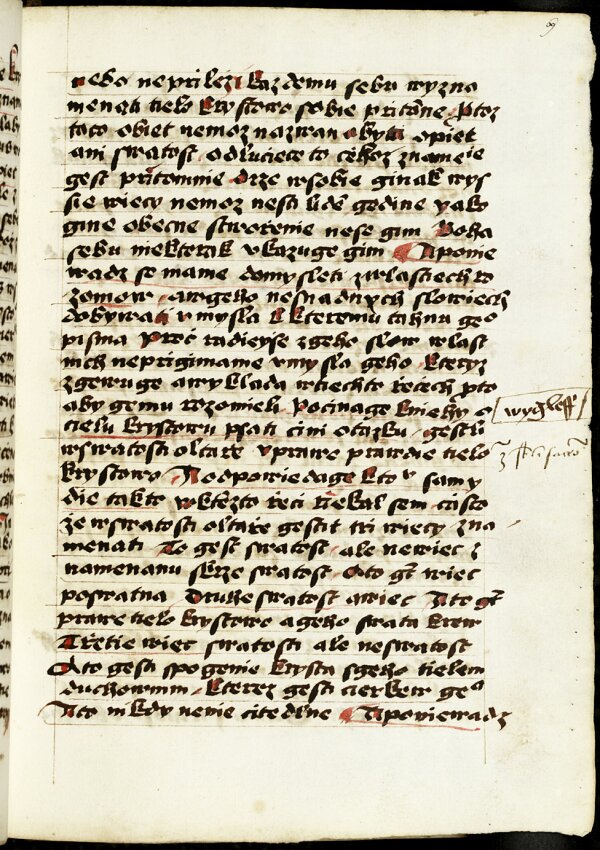 nebo neprileži každemu sebu wyzna
menati tielo krystowo sobie pritōne Protož
taco obiet nemož nazwan obyti opiet
ani swatost odlucieto to cehož znameie
gest pritomnie drze wsobie ginak wys
sie wiecy nemož nesti lidē godine yako
gine obecne stworenie nese gim Boha
sebu niekterak vkazuge gim A tiponie
wadž se mame domysleti zwlastiech ro
zomow awgeho nesnadnych slowiech
dobywati vmysla kkteremu tahnu geo
pisma Proč radieyse zgeho slow wlast
nich neprigimame vmysla geho kteryz
zgewuge awyklada wtiechto řečech pto
aby gemu rozomieli Počinage knichy o
tielu krystowu psati cini otazku gestli
wswatosti oltaře vprawe prawdie tielo
krystowo A odpowiedage kto v samy
die takto vktežto řeci riekal sem cisto
že wswatosti oltaře gestit tri wiecy zna
menati To gest swatost ale newiec z
namenanu skrze swatost Ato gt wiec
poswatna Druhe swatost awiec Ato gt
prawe tielo krystowo ageho swata krew
Třetie wiec swatosti ale neswatost
Ato gesti spogenie krysta sgeho tielem
duchownim kterez gesti cierkew geo
Ato nikdy nenie citedlne A tiponiewadz
wygleff